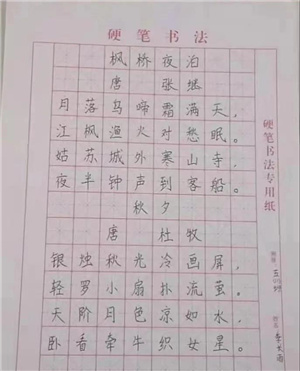 硬笔书法
枫桥夜泊
唐 张继
月落乌啼霜满天，
江枫渔火对愁眠。
姑苏城外寒山寺，
夜半钟声到客船。
秋夕
唐 杜牧
银烛秋光冷画屏，
轻罗小扇扑流萤。
天阶月色凉如水，
卧看牵牛织女星。
硬笔书法专用纸
班级
姓名